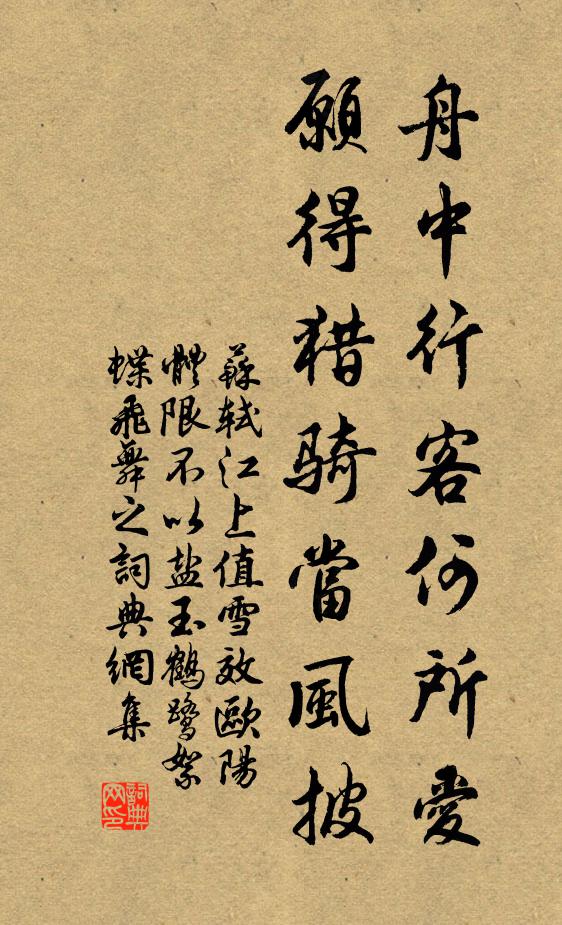 舟中行客何所愛
願得猎骑當風披
蘇轼江上值雪效歐陽
體限不以盐玉鶴鹭絮
蝶飛舞之詞典網集
詞典
网印